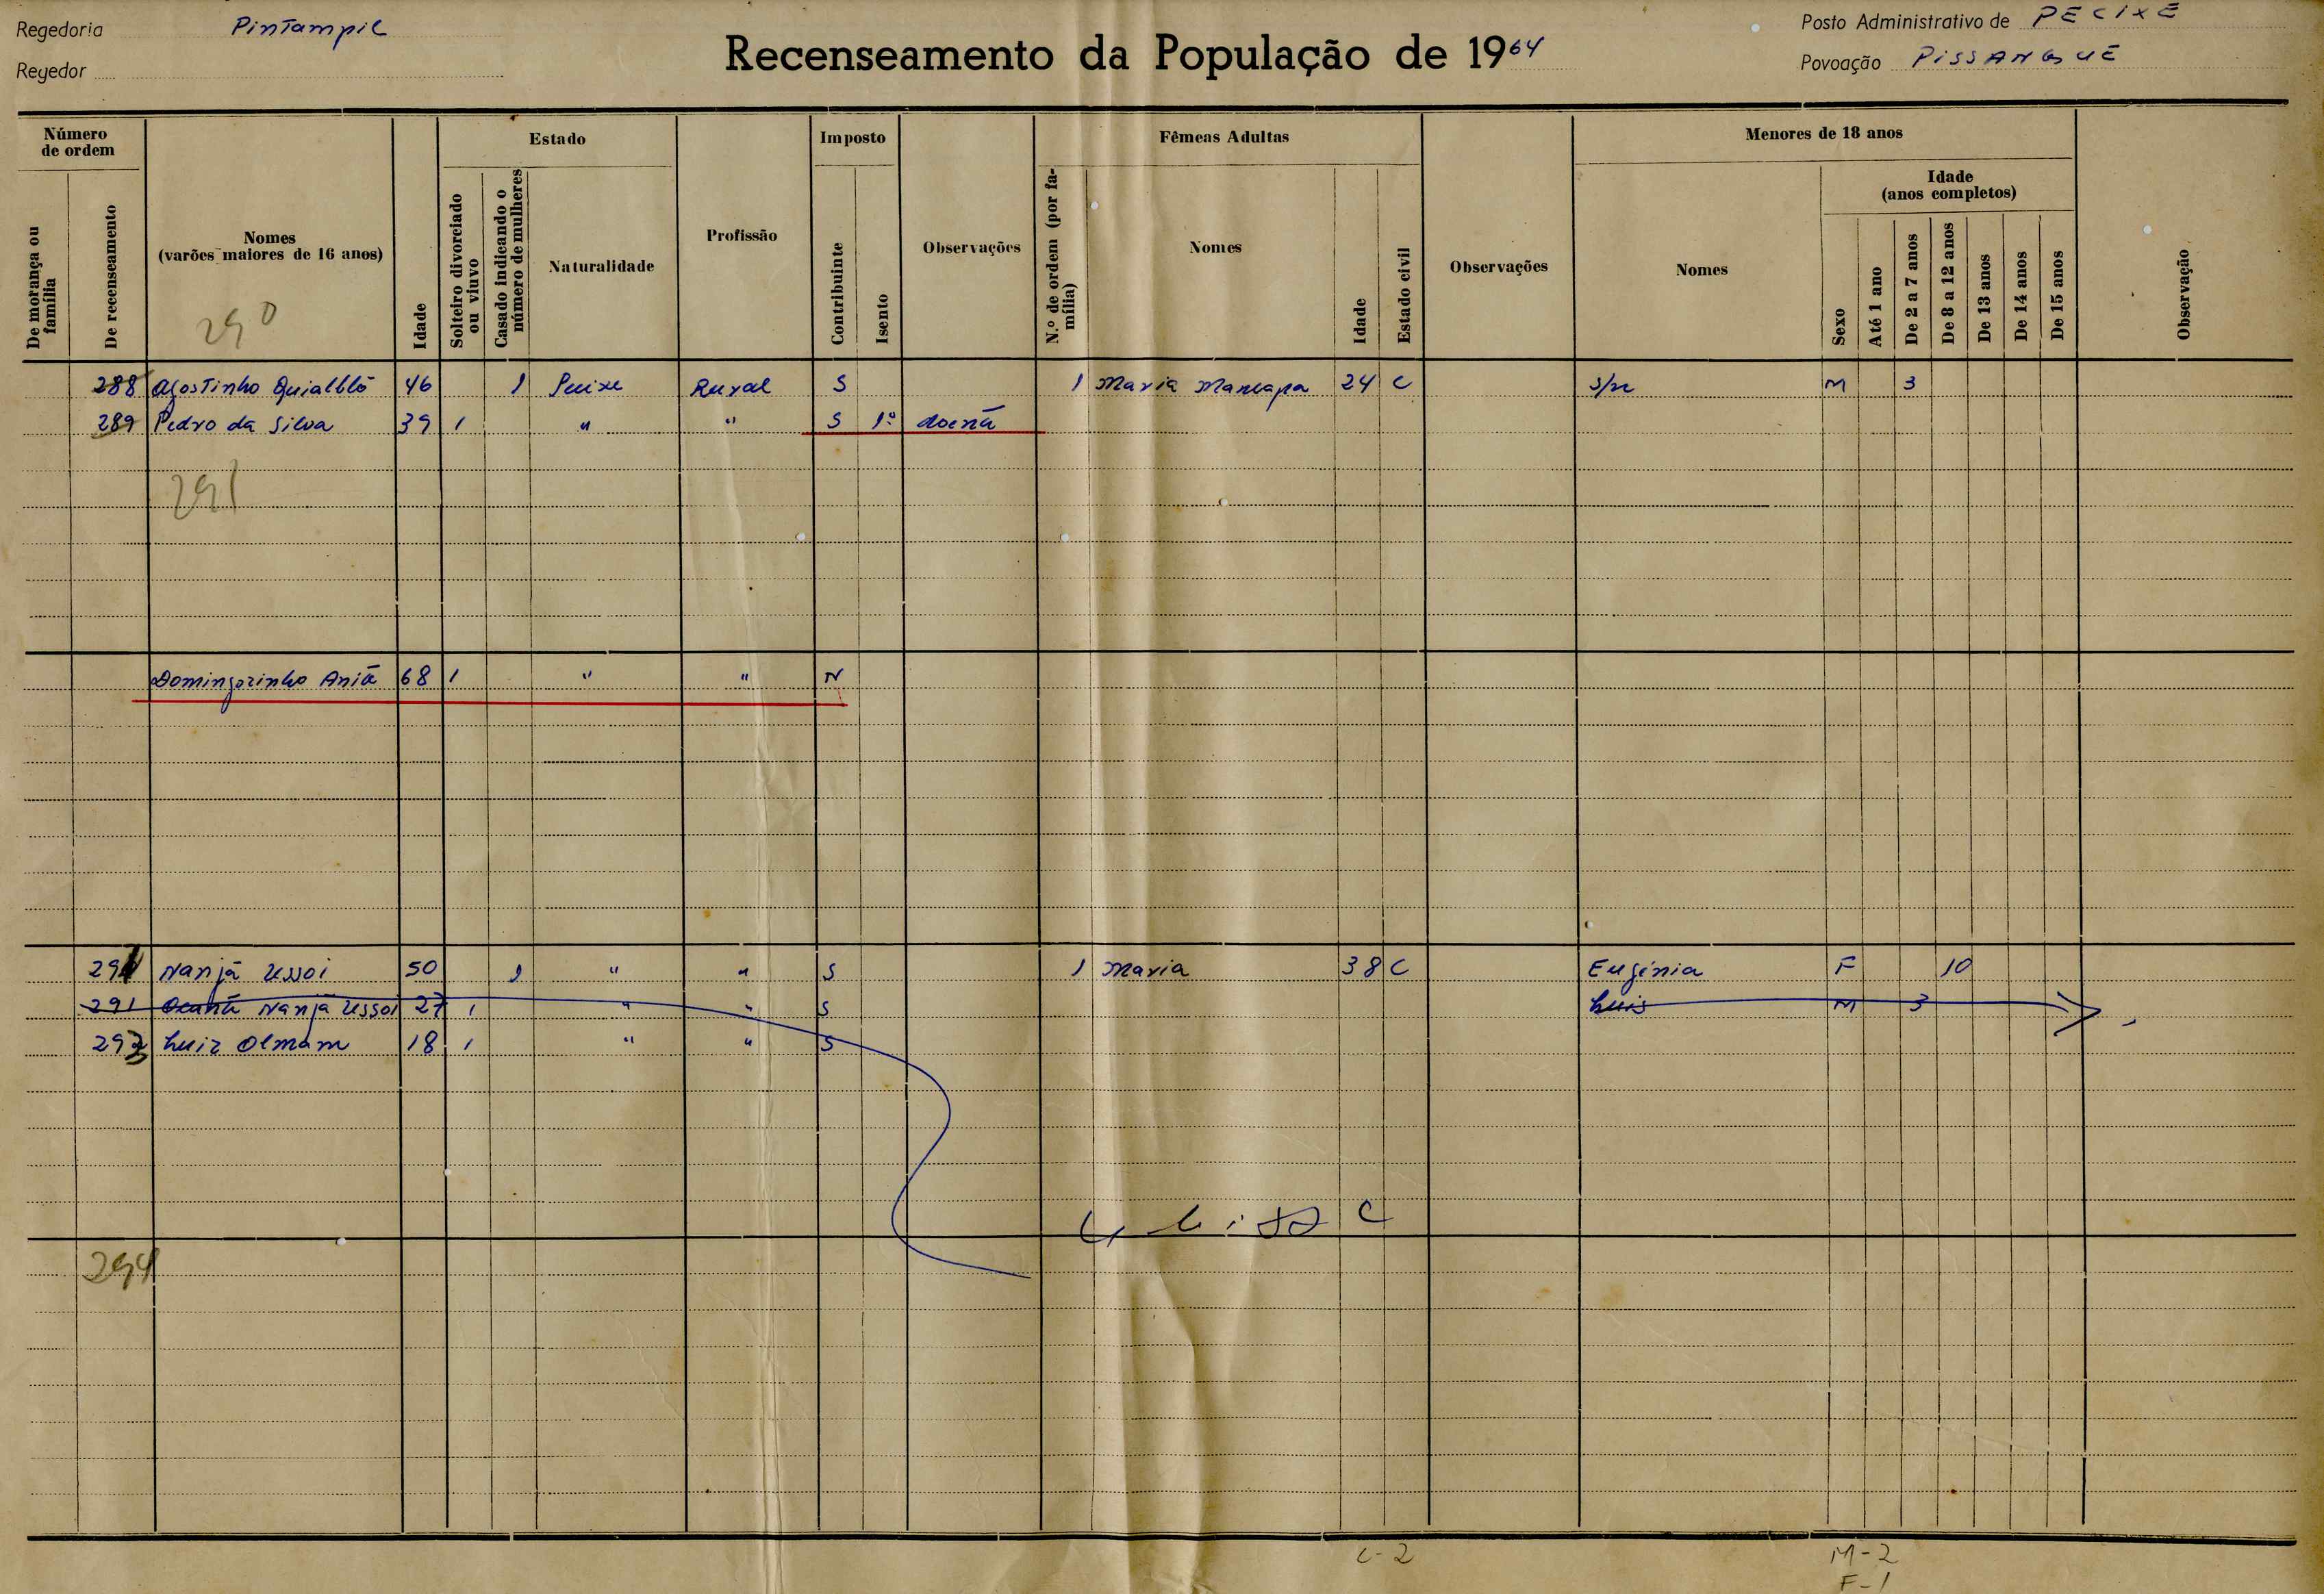 Regedoria Pintampil
Posto Administrativo de PECIXE
Recenseamento da População de 1964
Regedor
Povoação PISSANGUE
Número de ordem
De morança ou família
De recenseamento
Nomes (varões maiores de 16 anos)
290
Idade
Estado
Solteiro divorciado ou viuvo
Casado indicando o número de mulheres
Naturalidade
Profissão
Imposto
Contribuinte
Isento
Observações
Fêmeas Adultas
N.º de ordem (por família)
Nomes
Idade
Estado civil
Observações
Menores de 18 anos
Nomes
Sexo
Idade (anos completos)
Até 1 ano
De 2 a 7 anos
De 8 a 12 anos
De 13 anos
De 14 anos
De 15 anos
Observação
288 Agostinho Quialbló 46 1 Peixe Rural S 1 Maria Mancapa 24 C s/n M 3
289 Pedro da Silva 39 1 " " S 1º
291
Domingozinho Aniã 68 1 " " N
Nanjã Ussoi 50 1 " " S 1 Maria 38 C Eugénia F 10
291 Nanjã Ussoi 27 1 " " S Luis M 3
Luiz Olmam 18 1 " " S
C
294
C-2 M-2
F-1